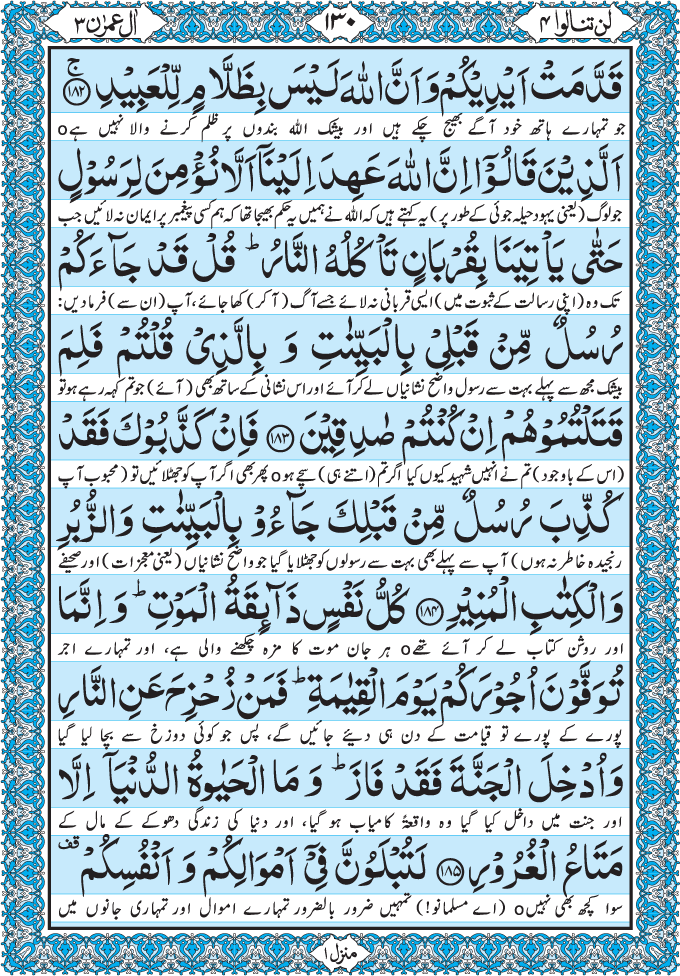 لن تنالوا ۴
۱۳۰
اٰل عمرٰن ۳
قَدَّمَتْ اَیْدِیْكُمْ وَ اَنَّ اللّٰهَ لَیْسَ بِظَلَّامٍ لِّلْعَبِیْدِۚ ﴿۱۸۲﴾ ج
جو تمہارے ہاتھ خود آگے بھیج چکے ہیں اور بیشک اللہ بندوں پر ظلم کرنے والا نہیں ہےo
اَلَّذِیْنَ قَالُوْۤا اِنَّ اللّٰهَ عَهِدَ اِلَیْنَاۤ اَلَّا نُؤْمِنَ لِرَسُوْلٍ
جو لوگ (یعنی یہود حیلہ جوئی کے طور پر) یہ کہتے ہیں کہ اللہ نے ہمیں یہ حکم بھیجا تھا کہ ہم کسی پیغمبر پر ایمان نہ لائیں جب
حَتّٰی یَاْتِیَنَا بِقُرْبَانٍ تَاْكُلُهُ النَّارُ ؕ قُلْ قَدْ جَآءَكُمْ
تک وہ (اپنی رسالت کے ثبوت میں) ایسی قربانی نہ لائے جسے آگ (آ کر) کھا جائے، آپ (ان سے) فرما دیں:
رُسُلٌ مِّنْ قَبْلِیْ بِالْبَیِّنٰتِ وَ بِالَّذِیْ قُلْتُمْ فَلِمَ
بیشک مجھ سے پہلے بہت سے رسول واضح نشانیاں لے کر آئے اور اس نشانی کے ساتھ بھی (آئے) جو تم کہہ رہے ہو تو
قَتَلْتُمُوْهُمْ اِنْ كُنْتُمْ صٰدِقِیْنَ ﴿۱۸۳﴾ فَاِنْ كَذَّبُوْكَ فَقَدْ
(اس کے باوجود) تم نے انہیں شہید کیوں کیا اگر تم (اتنے ہی) سچے ہوo پھر بھی اگر آپ کو جھٹلائیں تو (محبوب آپ
كُذِّبَ رُسُلٌ مِّنْ قَبْلِكَ جَآءُوْ بِالْبَیِّنٰتِ وَ الزُّبُرِ
رنجیدہ خاطر نہ ہوں) آپ سے پہلے بھی بہت سے رسولوں کو جھٹلایا گیا جو واضح نشانیاں (یعنی معجزات) اور صحیفے
وَ الْكِتٰبِ الْمُنِیْرِ ﴿۱۸۴﴾ كُلُّ نَفْسٍ ذَآىِٕقَةُ الْمَوْتِ ؕ وَ اِنَّمَا
اور روشن کتاب لے کر آئے تھےo ہر جان موت کا مزہ چکھنے والی ہے، اور تمہارے اجر
تُوَفَّوْنَ اُجُوْرَكُمْ یَوْمَ الْقِیٰمَةِ ؕ فَمَنْ زُحْزِحَ عَنِ النَّارِ
پورے کے پورے تو قیامت کے دن ہی دیئے جائیں گے، پس جو کوئی دوزخ سے بچا لیا گیا
وَ اُدْخِلَ الْجَنَّةَ فَقَدْ فَازَ ؕ وَ مَا الْحَیٰوةُ الدُّنْیَاۤ اِلَّا
اور جنت میں داخل کیا گیا وہ واقعۃً کامیاب ہو گیا، اور دنیا کی زندگی دھوکے کے مال کے
مَتَاعُ الْغُرُوْرِ ﴿۱۸۵﴾ لَتُبْلَوُنَّ فِیْۤ اَمْوَالِكُمْ وَ اَنْفُسِكُمْ قف
سوا کچھ بھی نہیںo (اے مسلمانو!) تمہیں ضرور بالضرور تمہارے اموال اور تمہاری جانوں میں
منزل ۱